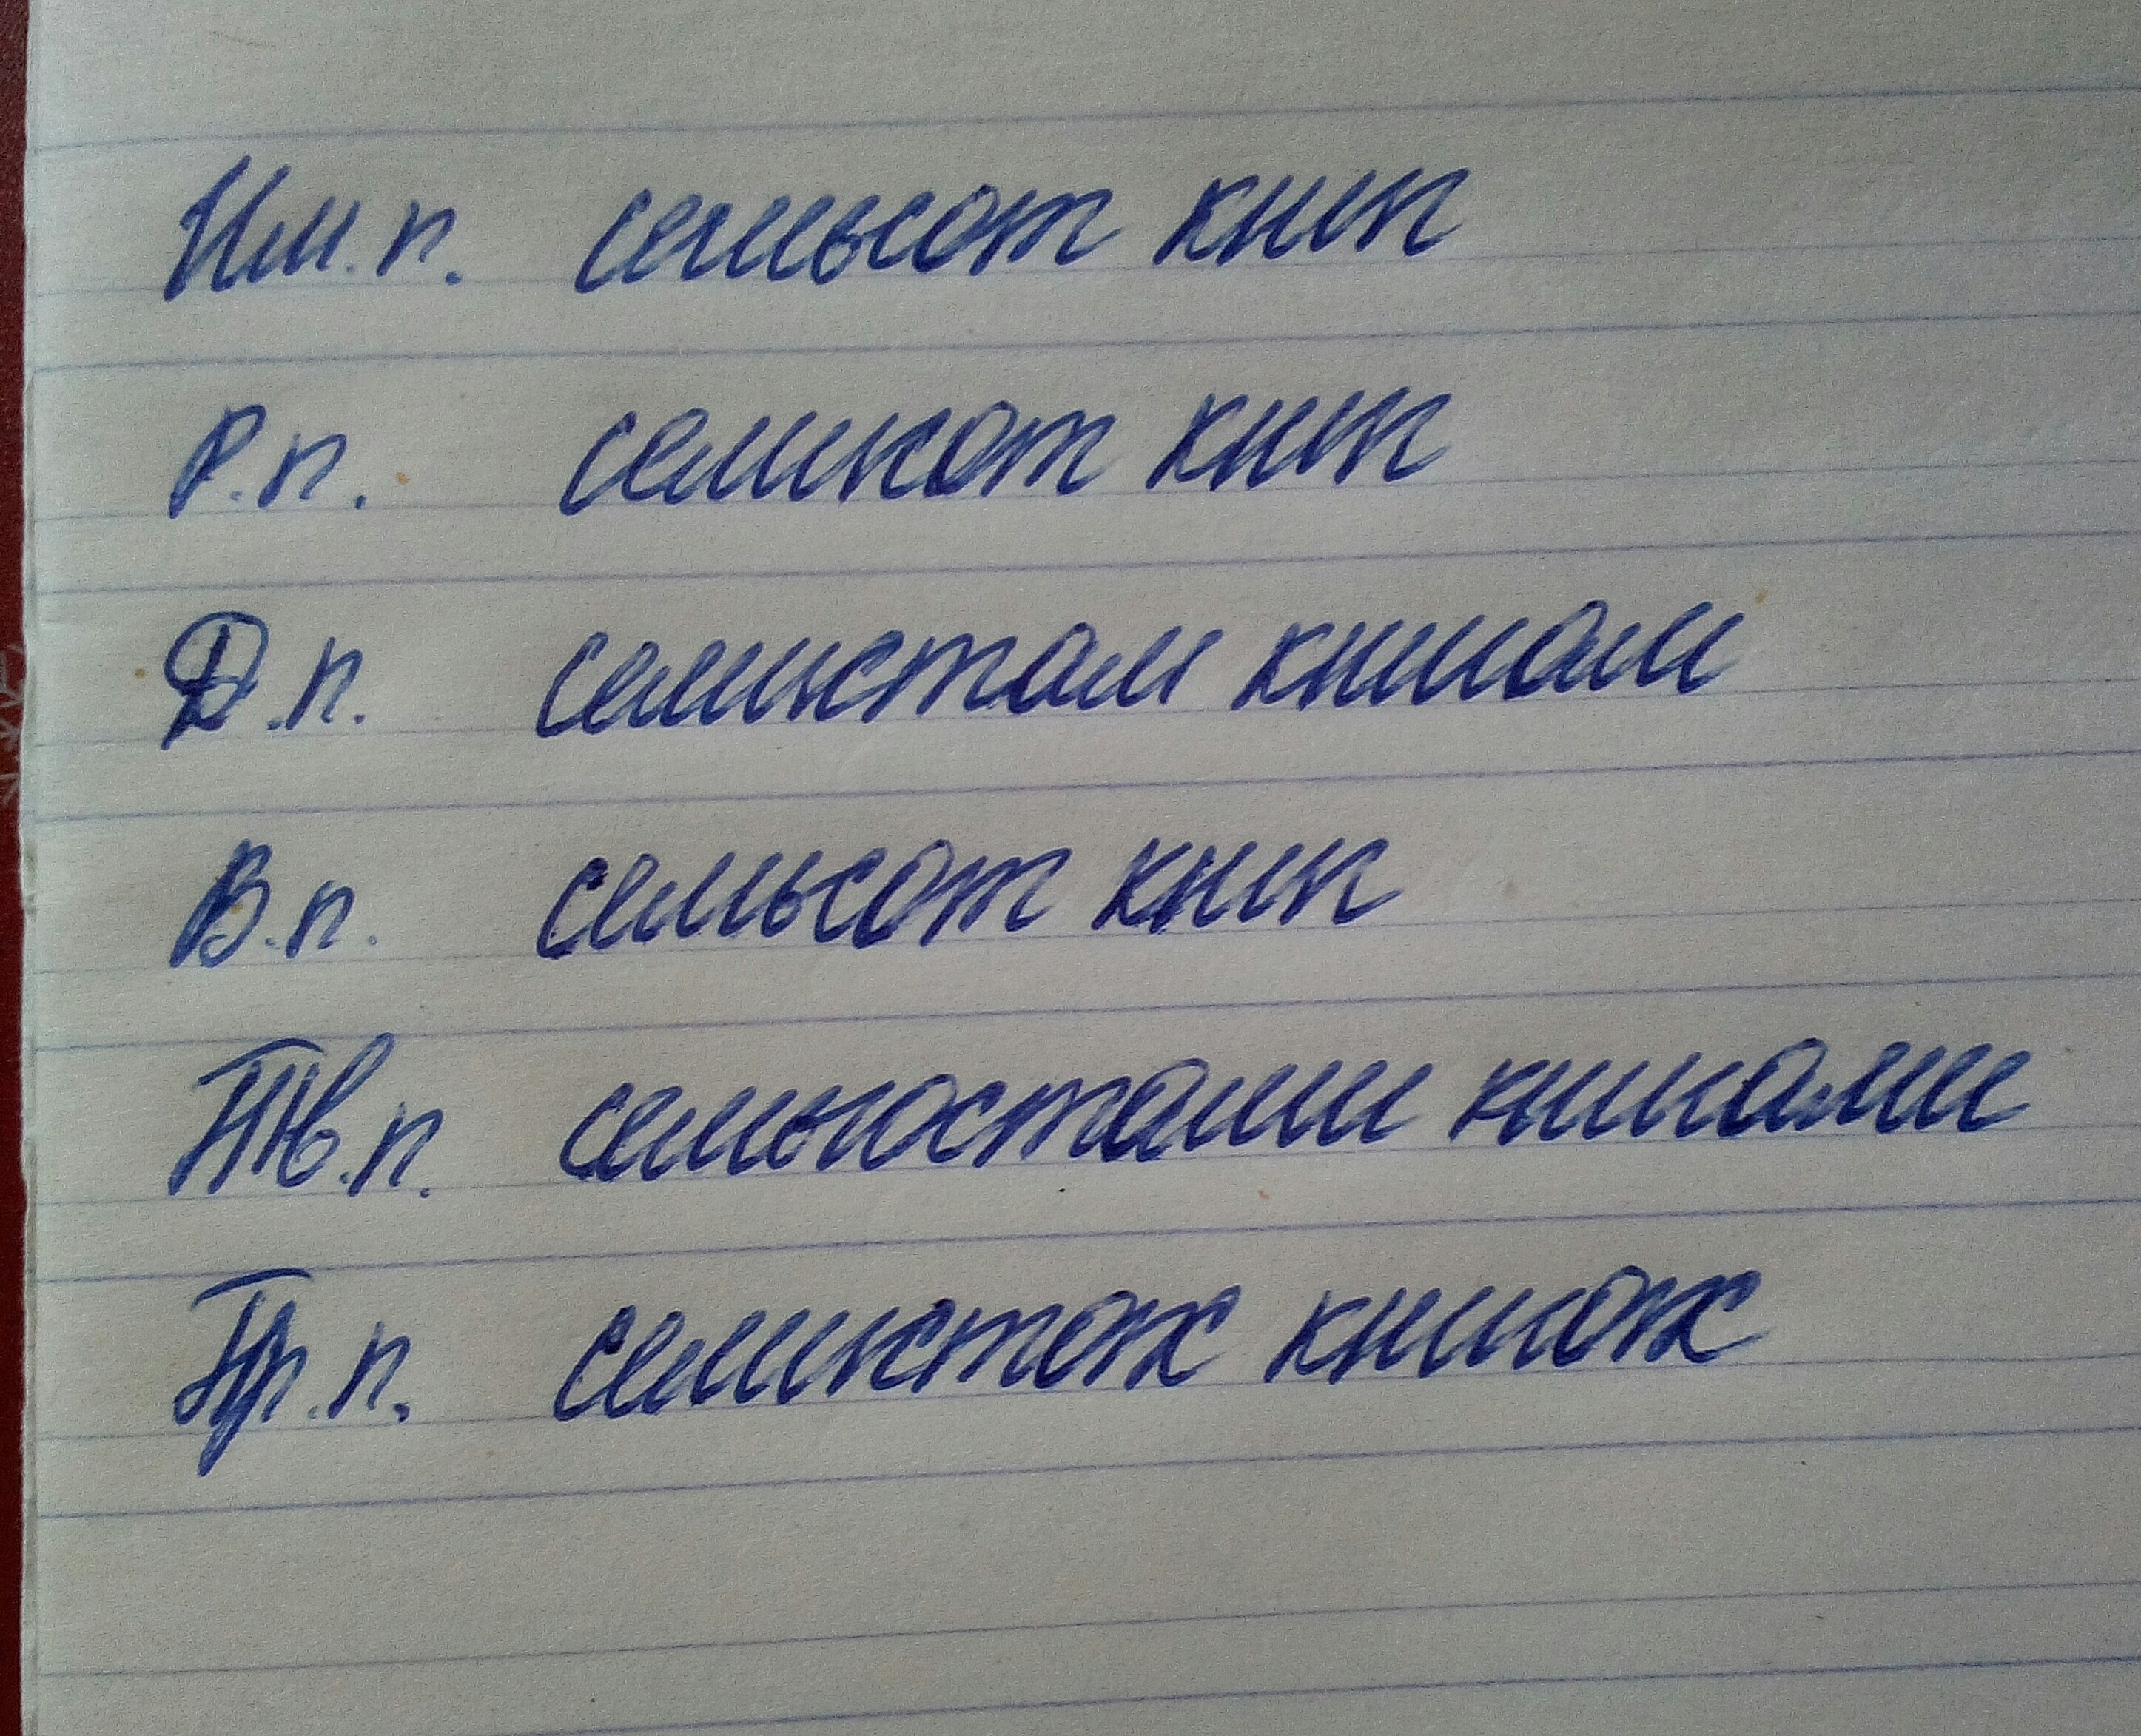 Им.п. семьсот книг
Р.п. семисот книг
Д.п. семистам книгам
В.п. семьсот книг
Тв.п. семьюстами книгами
Пр.п. семистах книгах